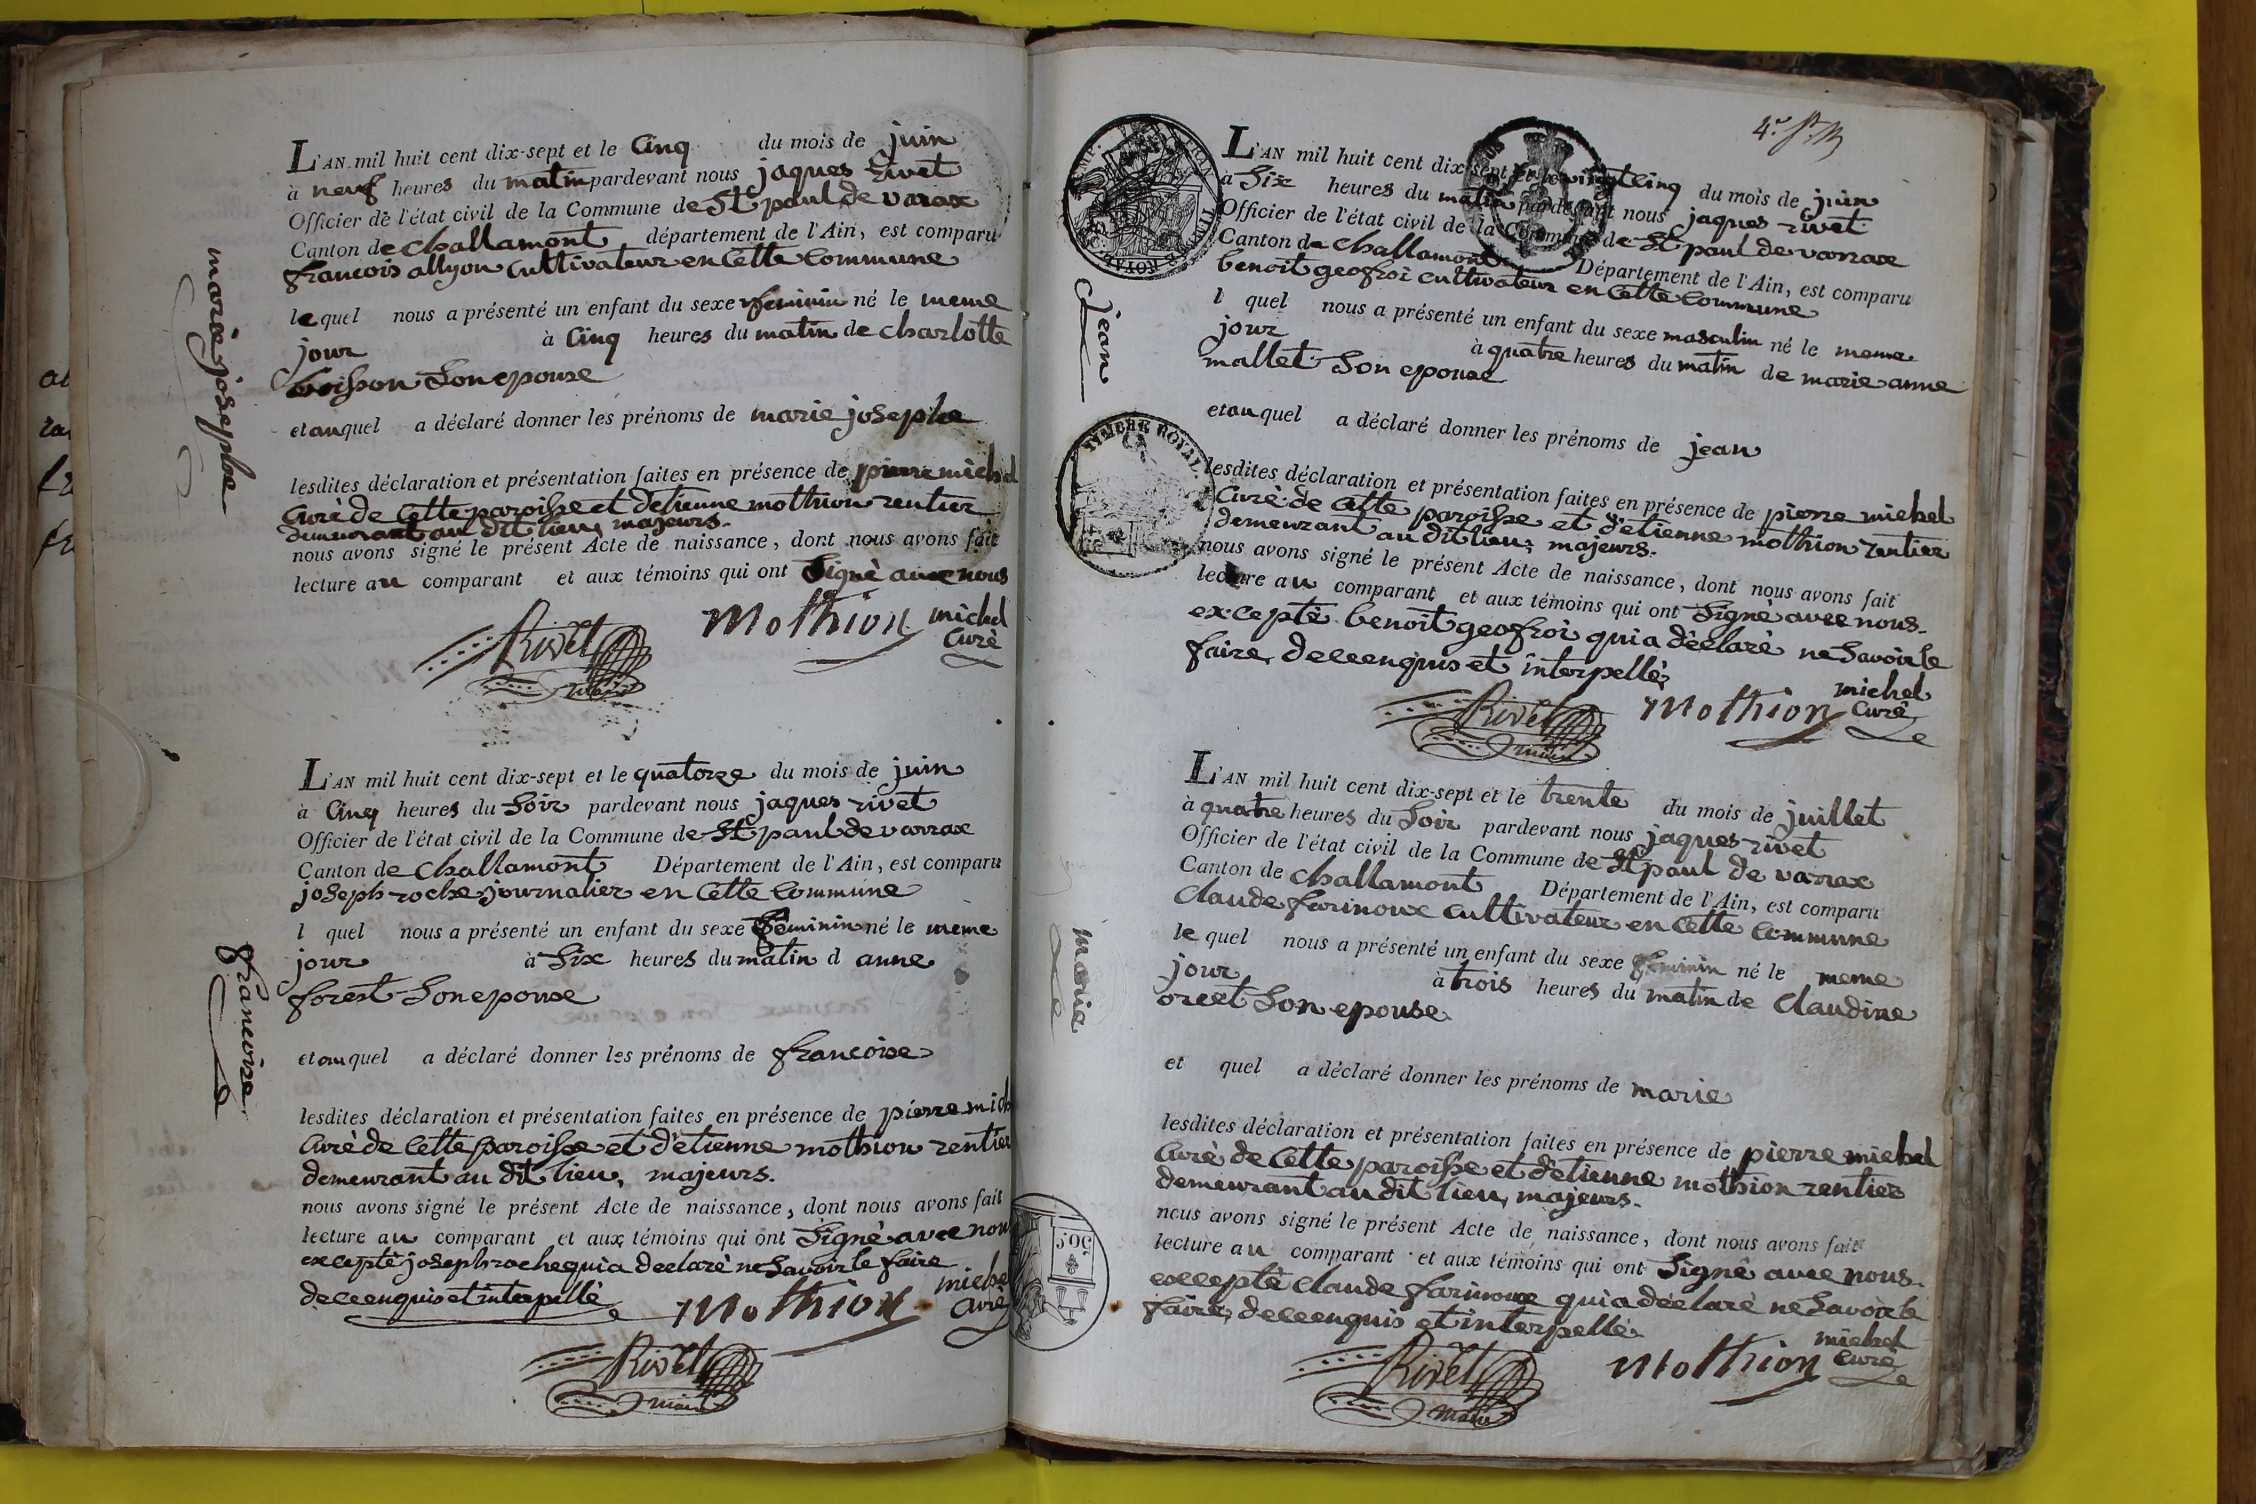 L'AN mil huit cent dix-sept et le cinq du mois de juin
à neuf heures du matin pardevant nous jaques rivet
Officier de l'état civil de la Commune de St paul de varax
Canton de challamont département de l'Ain, est comparu
francois allyon cultivateur en cette commune
lequel nous a présenté un enfant du sexe feminin né le meme
jour à cinq heures du matin de charlotte
boisson son epouse
et auquel a déclaré donner les prénoms de marie josephe
lesdites déclaration et présentation faites en présence de pierre michel
curè de cette paroisse et d'etienne mothion rentier
demeurant au dit lieu, majeurs.
nous avons signé le présent Acte de naissance, dont nous avons fait
lecture au comparant et aux témoins qui ont signè avec nous
Rivet Mothion michel
curè
maire
marie josephe
L'AN mil huit cent dix-sept et le quatorze du mois de juin
à cinq heures du soir pardevant nous jaques rivet
Officier de l'état civil de la Commune de St paul de varax
Canton de challamont Département de l'Ain, est comparu
joseph roche journalier en cette commune
l quel nous a présenté un enfant du sexe feminin né le meme
jour à six heures du matin d anne
forest son epouse
et auquel a déclaré donner les prénoms de francoise
lesdites déclaration et présentation faites en présence de pierre mich
curè de cette paroisse et d'etienne mothion rentier
demeurant au dit lieu, majeurs.
nous avons signé le présent Acte de naissance, dont nous avons fait
lecture au comparant et aux témoins qui ont signè avec nou
exceptè joseph roche qui a declarè ne savoir le faire
de ce enquis et interpellè
Mothion michel
curè
Rivet
maire
francoise
4e
L'AN mil huit cent dix-sept et le vingt cinq du mois de juin
à six heures du matin pardevant nous jaques rivet
Officier de l'état civil de la Commune de St paul de varax
Canton de challamont Département de l'Ain, est comparu
benoit geofroi cultivateur en cette commune
l quel nous a présenté un enfant du sexe masculin né le meme
jour à quatre heures du matin de marie anne
mallet son epouse
et auquel a déclaré donner les prénoms de jean
lesdites déclaration et présentation faites en présence de pierre michel
curè de cette paroisse et d'etienne mothion rentier
demeurant au dit lieu, majeurs.
nous avons signé le présent Acte de naissance, dont nous avons fait
lecture au comparant et aux témoins qui ont signè avec nous
exceptè benoit geofroi qui a dèclarè ne savoir le
faire, de ce enquis et interpellè,
Rivet Mothion michel
curè
maire
jean
TIMBRE ROYAL
L'AN mil huit cent dix-sept et le trente du mois de juillet
à quatre heures du soir pardevant nous jaques rivet
Officier de l'état civil de la Commune de St paul de varax
Canton de challamont Département de l'Ain, est comparu
claude farinoux cultivateur en cette commune
le quel nous a présenté un enfant du sexe feminin né le meme
jour à trois heures du matin de claudine
orcet son epouse
et quel a déclaré donner les prénoms de marie
lesdites déclaration et présentation faites en présence de pierre michel
curè de cette paroisse et d'etienne mothion rentier
demeurant au dit lieu, majeurs.
nous avons signé le présent Acte de naissance, dont nous avons fait
lecture au comparant et aux témoins qui ont signè avec nous
exceptè claude farinoux qui a dèclarè ne savoir le
faire, de ce enquis et interpellè
Rivet Mothion michel
curè
maire
marie
50c